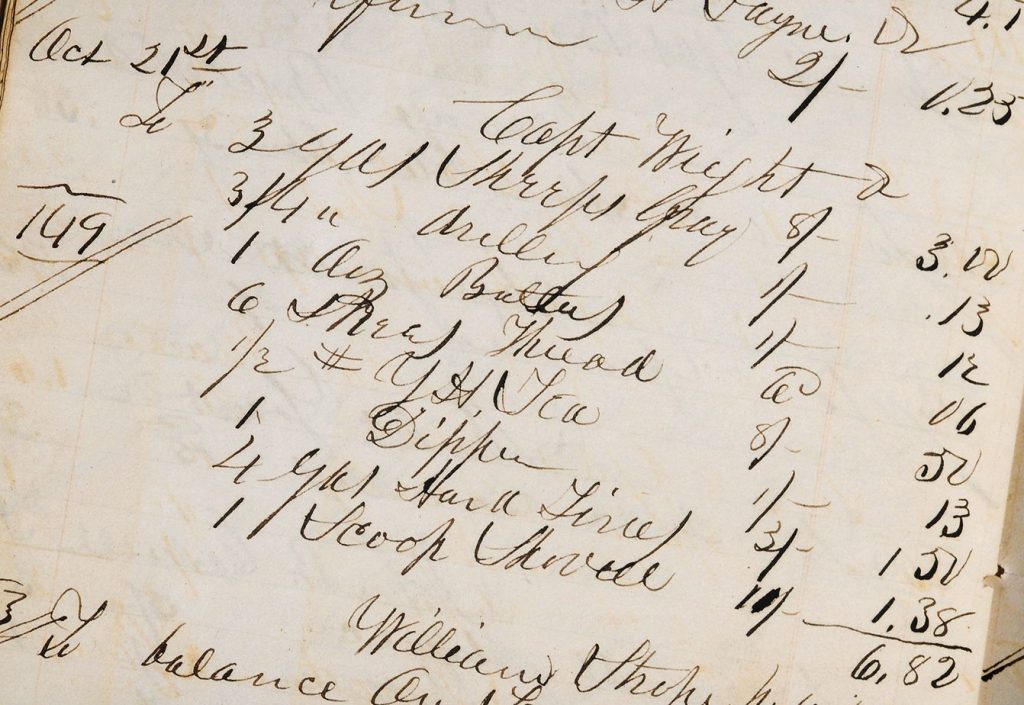 Payne. Dr
2/- 0.25
Oct 21st
Capt Wight Dr
To 3 yds Sheeps Gray 8/- 3.00
3/4 " drilling 1/- .13
149
1 doz Buttons 1/- 12
6 Skeas Thread @ 06
1/2 # Y.H. Tea 8/- 50
1 Dipper 1/- 13
4 yds Hard Times 3/- 1 50
1 Scoop Shovel 11/- 1.38
6.82
William
To balance On